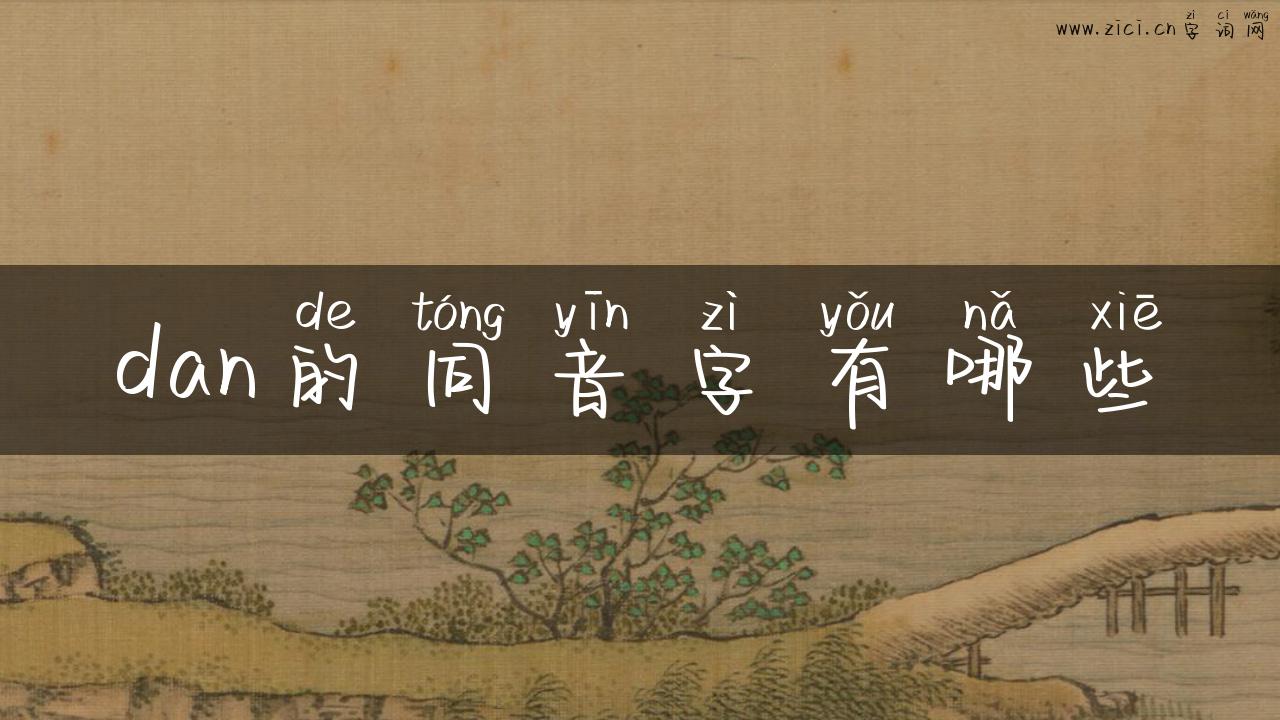 zì cí wǎng
www.zici.cn字词网
de tóng yīn zì yǒu nǎ xiē
dan的同音字有哪些